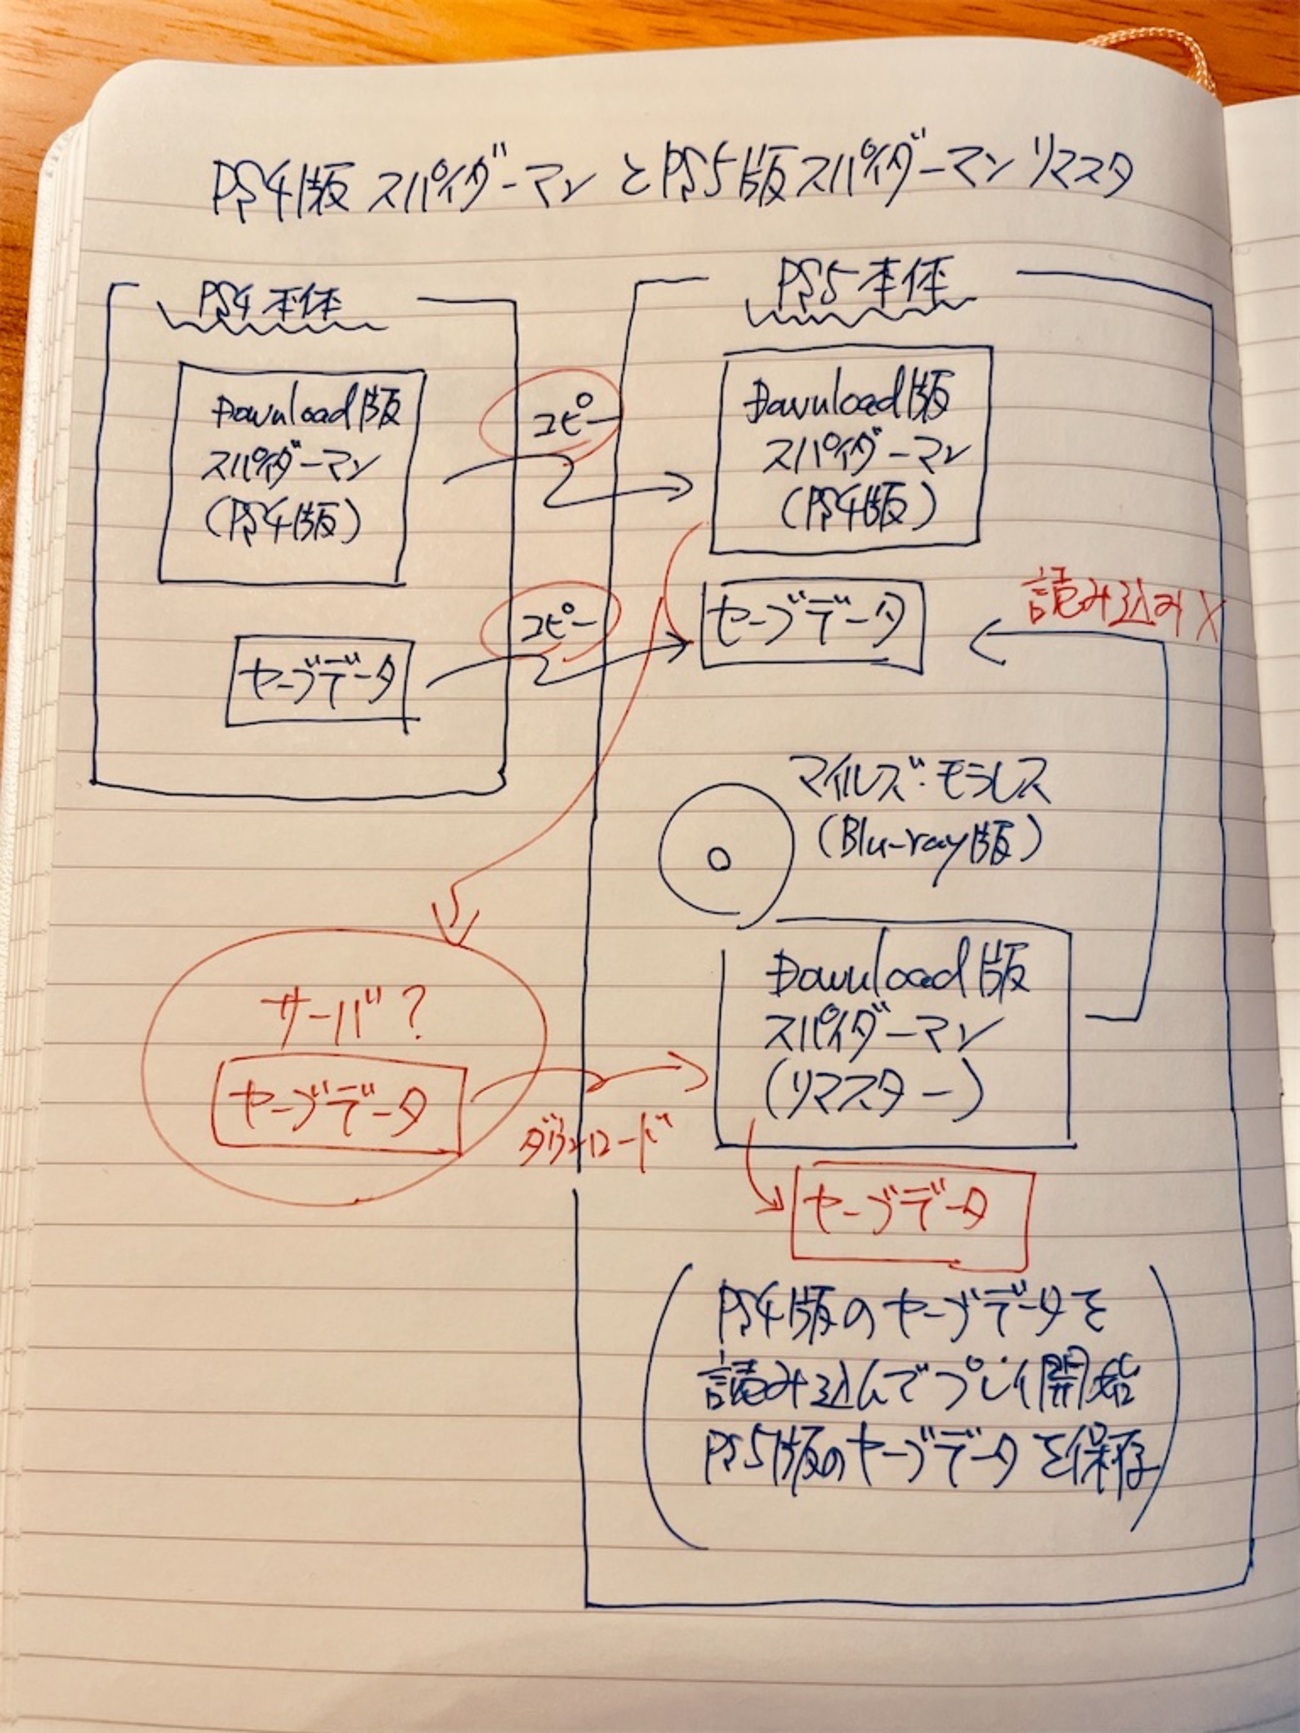 PS4版 スパイダーマン と PS5版 スパイダーマン リマスタ
PS4 本体
Download版
スパイダーマン
(PS4版)
セーブデータ
コピー
コピー
PS5 本体
Download版
スパイダーマン
(PS4版)
セーブデータ
読み込み X
マイルズ:モラレス
(Blu-ray版)
Download版
スパイダーマン
(リマスター)
サーバ?
セーブデータ
ダウンロード
セーブデータ
(PS4版のセーブデータを
読み込んでプレイ開始
PS5版のセーブデータを保存)